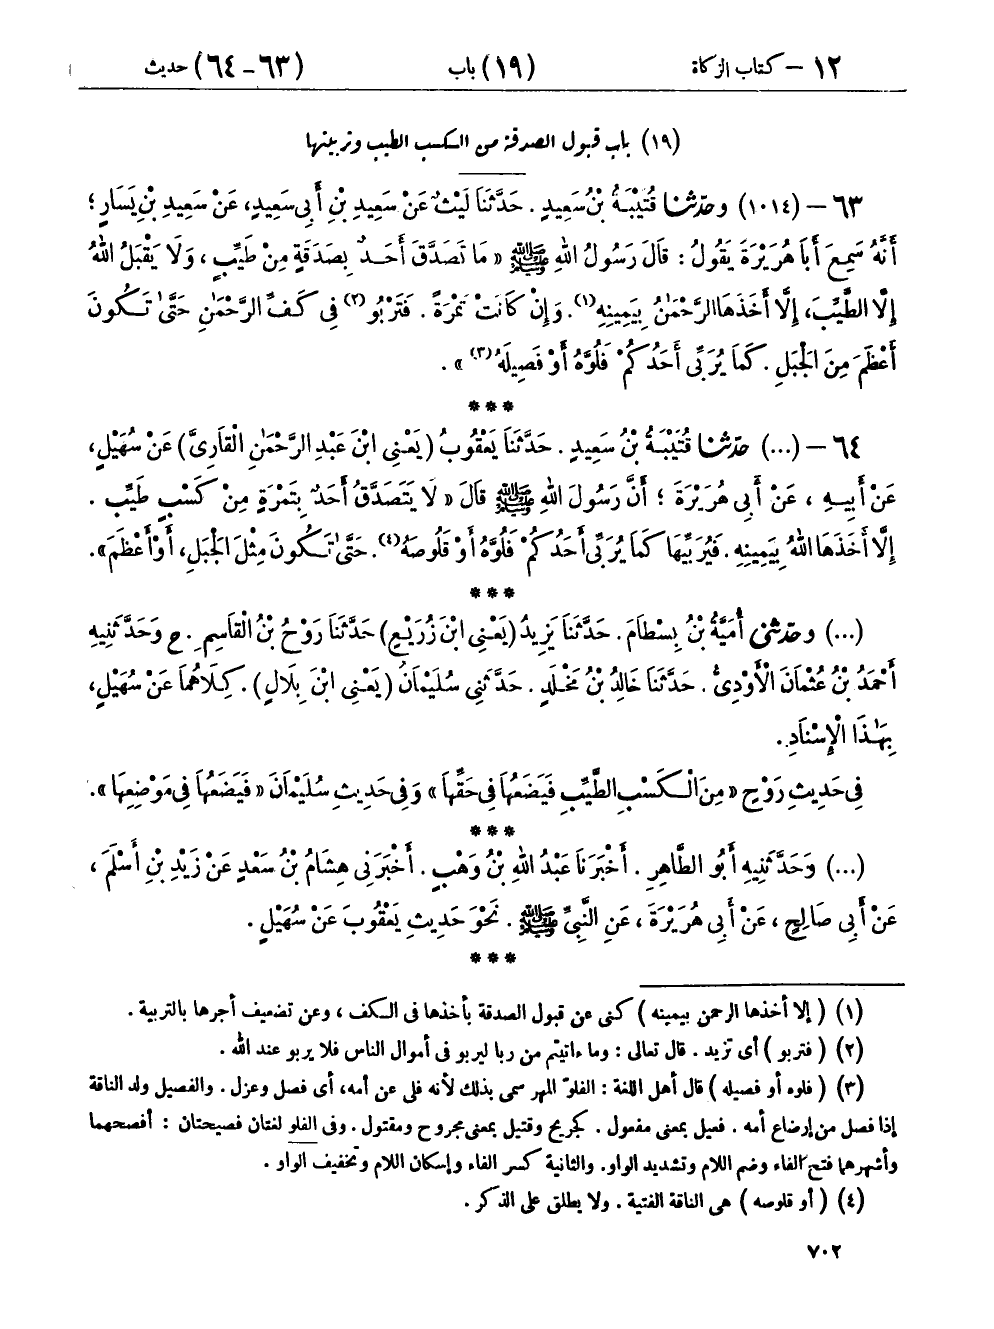 ١٢ – كتاب الزكاة (١٩) باب (٦٣ – ٦٤) حديث
(١٩) باب قبول الصدقة من الكسب الطيب وتربيتها
٦٣ – (١٠١٤) وحدّثنا قُتَيْبَةُ بْنُ سَعِيدٍ . حَدَّثَنَا لَيْثٌ عَنْ سَعِيدِ بْنِ أَبِي سَعِيدٍ، عَنْ سَعِيدِ بْنِ يَسَارٍ ؛
أَنَّهُ سَمِعَ أَبَا هُرَيْرَةَ يَقُولُ : قَالَ رَسُولُ اللهِ ﷺ « مَا تَصَدَّقَ أَحَدٌ بِصَدَقَةٍ مِنْ طَيِّبٍ ، وَلَا يَقْبَلُ اللهُ
إِلَّا الطَّيِّبَ، إِلَّا أَخَذَهَا الرَّحْمَٰنُ بِيَمِينِهِ (١). وَإِنْ كَانَتْ تَمْرَةً . فَتَرْبُو (٢) فِي كَفِّ الرَّحْمَٰنِ حَتَّىٰ تَكُونَ
أَعْظَمَ مِنَ الْجَبَلِ . كَمَا يُرَبِّي أَحَدُكُمْ فَلُوَّهُ أَوْ فَصِيلَهُ (٣) » .
***
٦٤ – (...) حدّثنا قُتَيْبَةُ بْنُ سَعِيدٍ . حَدَّثَنَا يَعْقُوبُ (يَعْنِي ابْنَ عَبْدِ الرَّحْمَٰنِ الْقَارِيَّ) عَنْ سُهَيْلٍ،
عَنْ أَبِيهِ ، عَنْ أَبِي هُرَيْرَةَ ؛ أَنَّ رَسُولَ اللهِ ﷺ قَالَ « لَا يَتَصَدَّقُ أَحَدٌ بِتَمْرَةٍ مِنْ كَسْبٍ طَيِّبٍ .
إِلَّا أَخَذَهَا اللهُ بِيَمِينِهِ . فَيُرَبِّيهَا كَمَا يُرَبِّي أَحَدُكُمْ فَلُوَّهُ أَوْ قَلُوصَهُ (٤). حَتَّىٰ تَكُونَ مِثْلَ الْجَبَلِ، أَوْ أَعْظَمَ».
***
(...) وحدّثني أُمَيَّةُ بْنُ بِسْطَامَ . حَدَّثَنَا يَزِيدُ (يَعْنِي ابْنَ زُرَيْعٍ) حَدَّثَنَا رَوْحُ بْنُ الْقَاسِمِ . ح وَحَدَّثَنِيهِ
أَحْمَدُ بْنُ عُثْمَانَ الْأَوْدِيُّ . حَدَّثَنَا خَالِدُ بْنُ مَخْلَدٍ . حَدَّثَنِي سُلَيْمَانُ (يَعْنِي ابْنَ بِلَالٍ) . كِلَاهُمَا عَنْ سُهَيْلٍ،
بِهَٰذَا الْإِسْنَادِ .
فِي حَدِيثِ رَوْحٍ « مِنَ الْكَسْبِ الطَّيِّبِ فَيَضَعُهَا فِي حَقِّهَا » وَفِي حَدِيثِ سُلَيْمَانَ « فَيَضَعُهَا فِي مَوْضِعِهَا ».
***
(...) وَحَدَّثَنِيهِ أَبُو الطَّاهِرِ . أَخْبَرَنَا عَبْدُ اللهِ بْنُ وَهْبٍ . أَخْبَرَنِي هِشَامُ بْنُ سَعْدٍ عَنْ زَيْدِ بْنِ أَسْلَمَ ،
عَنْ أَبِي صَالِحٍ ، عَنْ أَبِي هُرَيْرَةَ ، عَنِ النَّبِيِّ ﷺ . نَحْوَ حَدِيثِ يَعْقُوبَ عَنْ سُهَيْلٍ .
***
(١) ( إلا أخذها الرحمن بيمينه ) كنى عن قبول الصدقة بأخذها فى الكف ، وعن تضعيف أجرها بالتربية .
(٢) ( فتربو ) أى تزيد . قال تعالى : وما ءاتيتم من ربا ليربو فى أموال الناس فلا يربو عند الله .
(٣) ( فلوه أو فصيله ) قال أهل اللغة : الفلوّ المهر سمى بذلك لأنه فلى عن أمه، أى فصل وعزل . والفصيل ولد الناقة
إذا فصل من إرضاع أمه . فعيل بمعنى مفعول . كجريح وقتيل بمعنى مجروح ومقتول . وفى الفلو لغتان فصيحتان : أفصحهما
وأشهرهما فتح الفاء وضم اللام وتشديد الواو. والثانية كسر الفاء وإسكان اللام وتخفيف الواو .
(٤) ( أو قلوصه ) هى الناقة الفتية . ولا يطلق على الذكر .
٧٠٢